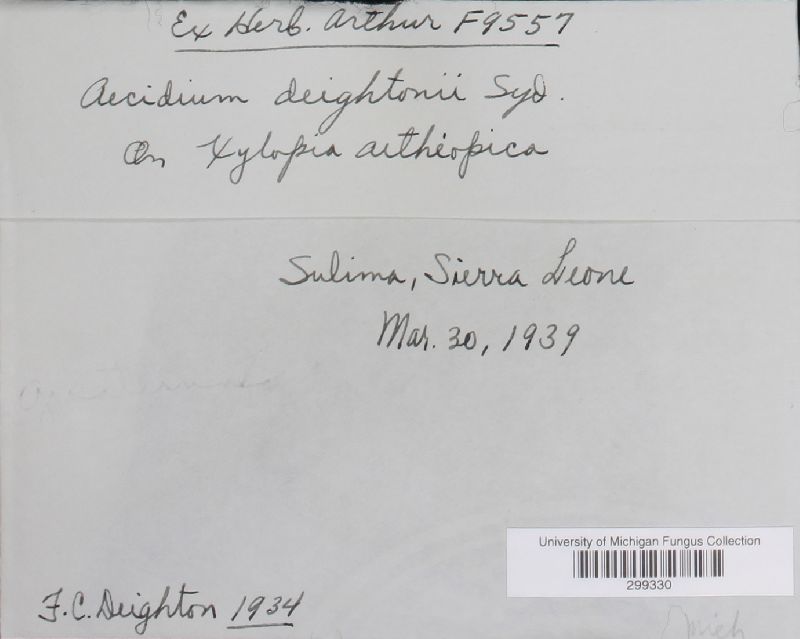 Ex Herb. Arthur F9557
Aecidium deightonii Syd.
On Xylopia aethiopica
Sulima, Sierra Leone
Mar. 30, 1939
University of Michigan Fungus Collection
299330
F.C. Deighton 1934